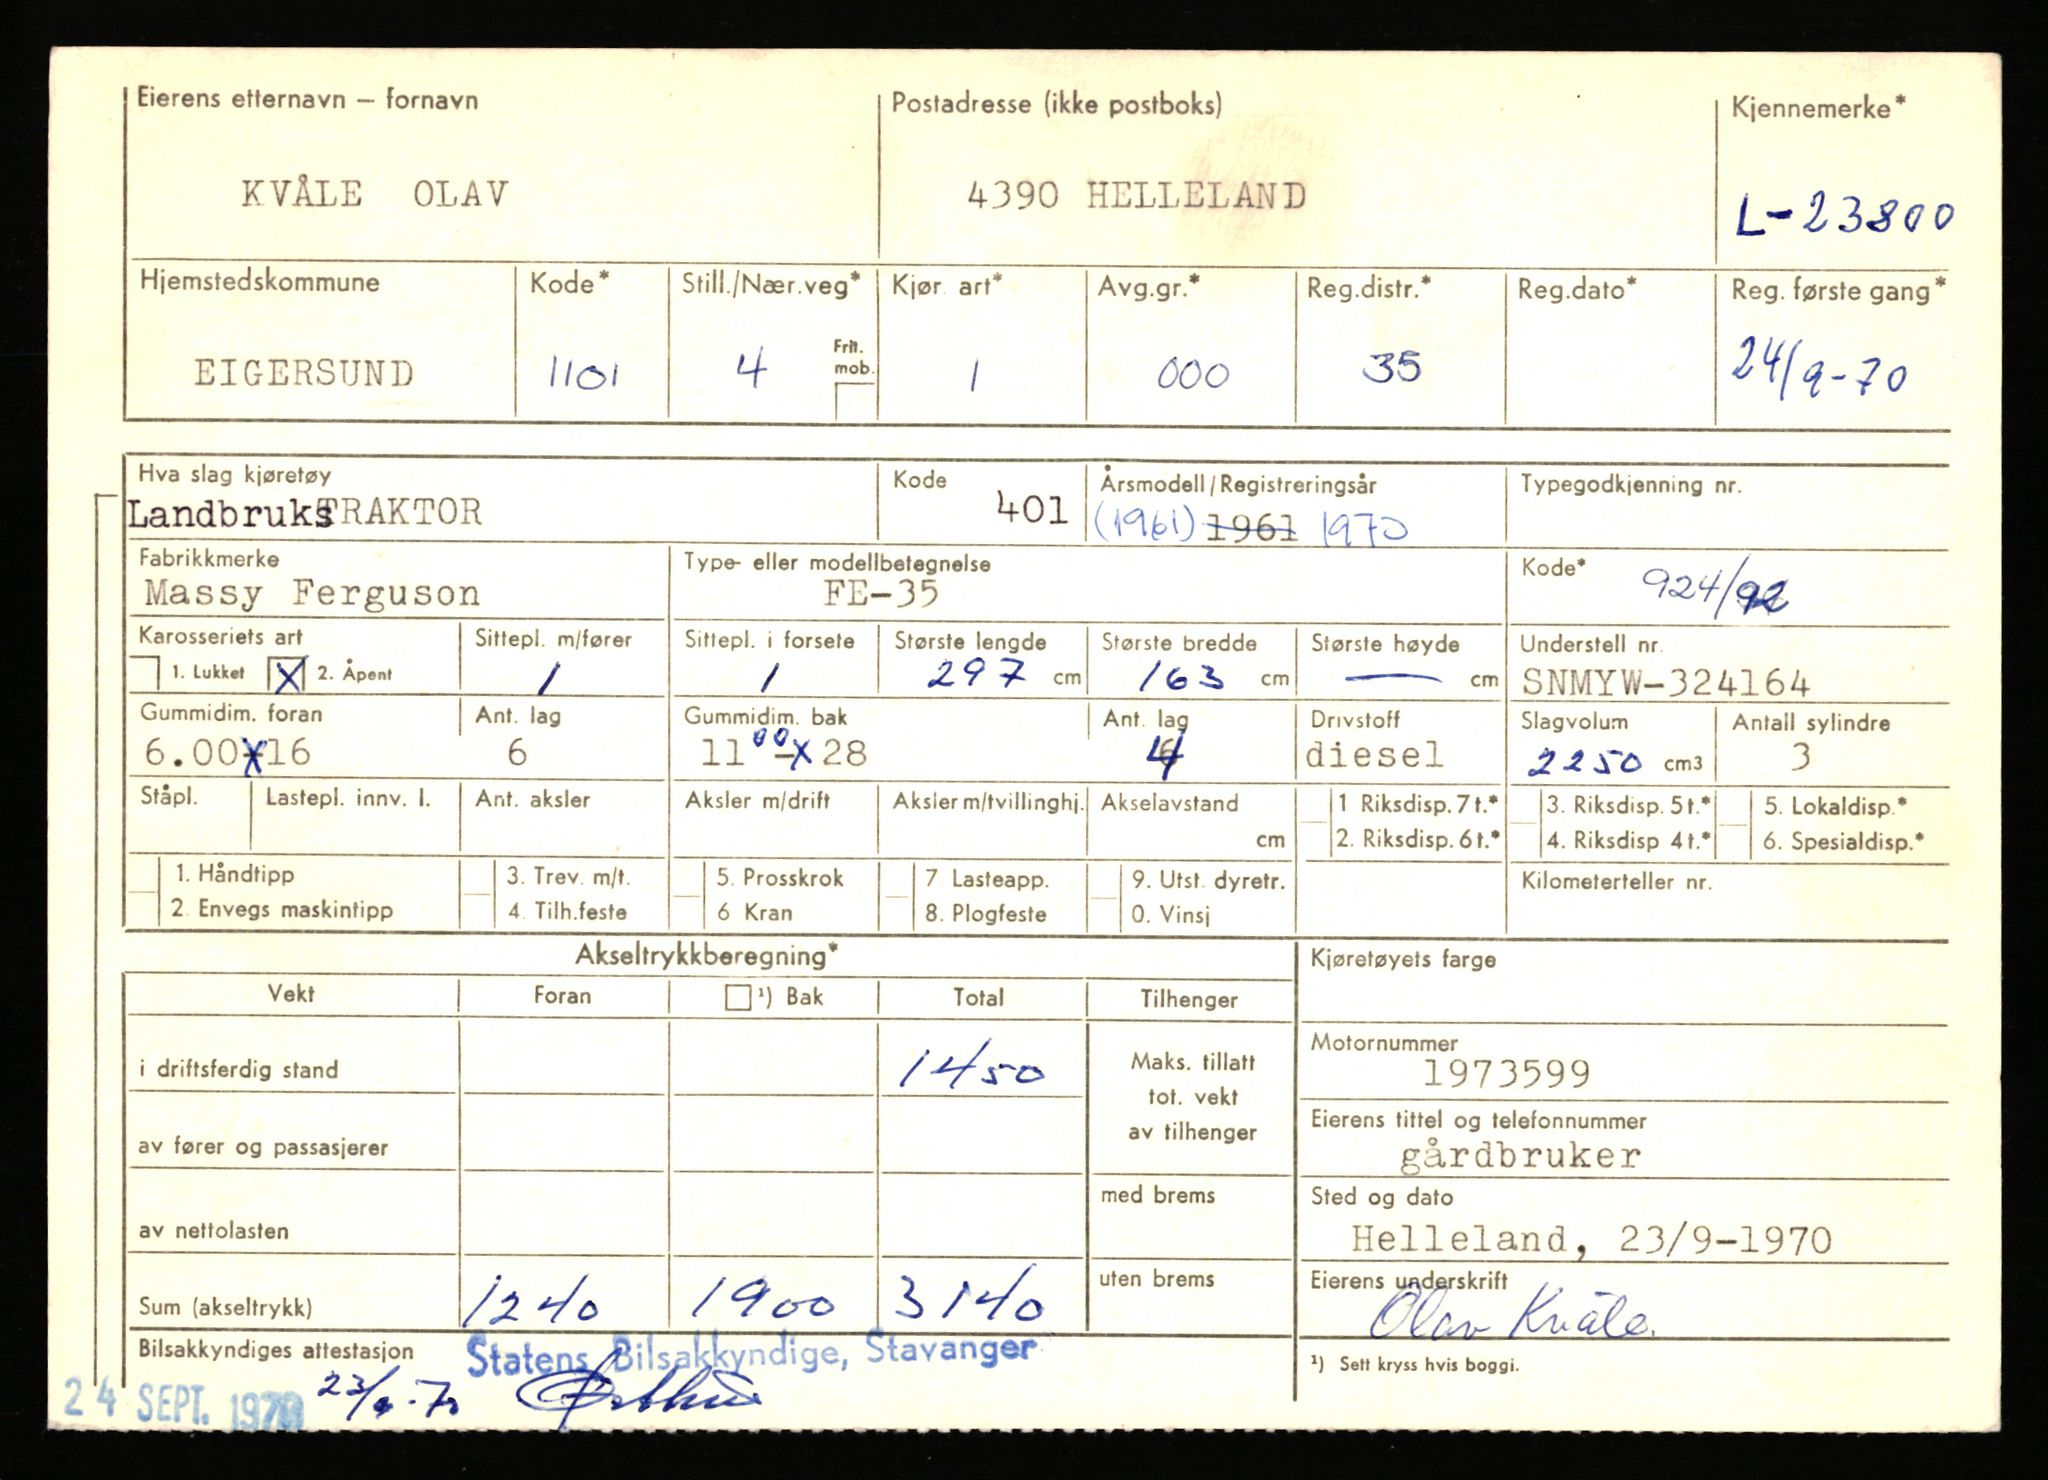 Eierens etternavn – fornavn Postadresse (ikke postboks) Kjennemerke*
KVÅLE OLAV 4390 HELLELAND L-23800
Hjemstedskommune Kode* Still./Nær.veg* Kjør. art* Avg.gr.* Reg.distr.* Reg.dato* Reg. første gang*
EIGERSUND 1101 4 Frit. mob. 1 000 35 24/9-70
Hva slag kjøretøy Kode Årsmodell/Registreringsår Typegodkjenning nr.
LandbruksTRAKTOR 401 (1961) 1961 1970
Fabrikkmerke Type- eller modellbetegnelse Kode*
Massy Ferguson FE-35 924/92
Karosseriets art Sittepl. m/fører Sittepl. i forsete Største lengde Største bredde Største høyde Understell nr.
1. Lukket X 2. Åpent 1 1 297 cm 163 cm — cm SNMYW-324164
Gummidim. foran Ant. lag Gummidim. bak Ant. lag Drivstoff Slagvolum Antall sylindre
6.00x16 6 11 00 x 28 4 diesel 2250 cm3 3
Ståpl. Lastepl. innv. l. Ant. aksler Aksler m/drift Aksler m/tvillinghj. Akselavstand 1 Riksdisp. 7 t.* 3. Riksdisp. 5 t.* 5. Lokaldisp.*
cm 2. Riksdisp. 6 t.* 4. Riksdisp 4 t.* 6. Spesialdisp.*
1. Håndtipp 3. Trev. m/t. 5. Prosskrok 7 Lasteapp. 9. Utst. dyretr. Kilometerteller nr.
2. Envegs maskintipp 4. Tilh.feste 6 Kran 8. Plogfeste 0. Vinsj
Akseltrykkberegning* Kjøretøyets farge
Vekt Foran ¹) Bak Total Tilhenger
i driftsferdig stand 1450 Maks. tillatt
tot. vekt
av tilhenger
Motornummer
1973599
Eierens tittel og telefonnummer
av fører og passasjerer gårdbruker
med brems Sted og dato
av nettolasten Helleland, 23/9-1970
uten brems Eierens underskrift
Sum (akseltrykk) 1240 1900 3140 Olav Kvåle.
Bilsakkyndiges attestasjon Statens Bilsakkyndige, Stavanger ¹) Sett kryss hvis boggi.
24 SEPT. 1970 23/9-70